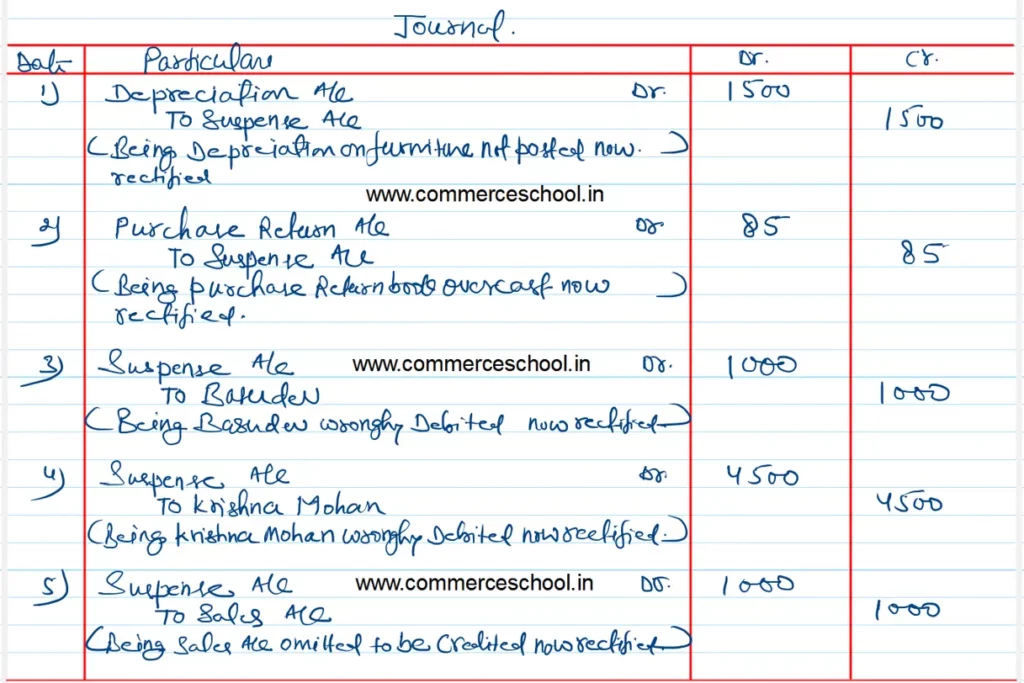 Journal.
Date Particulars Dr. Cr.
1) Depreciation A/c Dr. 1500
To Suspense A/c 1500
(Being Depreciation on furniture not posted now.)
rectified
www.commerceschool.in
2) Purchase Return A/c Dr 85
To Suspense A/c 85
(Being purchase Return book overcast now)
rectified.
3) Suspense A/c www.commerceschool.in Dr. 1000
To Basudev 1000
(Being Basudev wrongly Debited now rectified)
4) Suspense A/c Dr. 4500
To Krishna Mohan 4500
(Being Krishna Mohan wrongly Debited now rectified.)
5) Suspense A/c www.commerceschool.in Dr. 1000
To Sales A/c 1000
(Being Sales A/c omitted to be Credited now rectified)